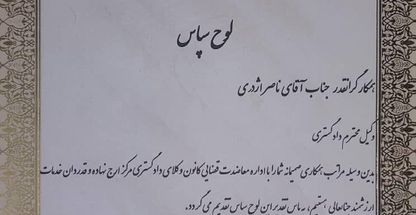 لوح سپاس
همکار گرانقدر جناب آقای ناصر اژدری
وکیل محترم دادگستری
بدین وسیله مراتب همکاری صمیمانه شما را با اداره معاضدت قضایی کانون وکلای دادگستری مرکز ارج نهاده و قدردان خدمات
ارزشمند جنابعالی هستیم، به پاس تقدیر این لوح سپاس تقدیم می گردد.